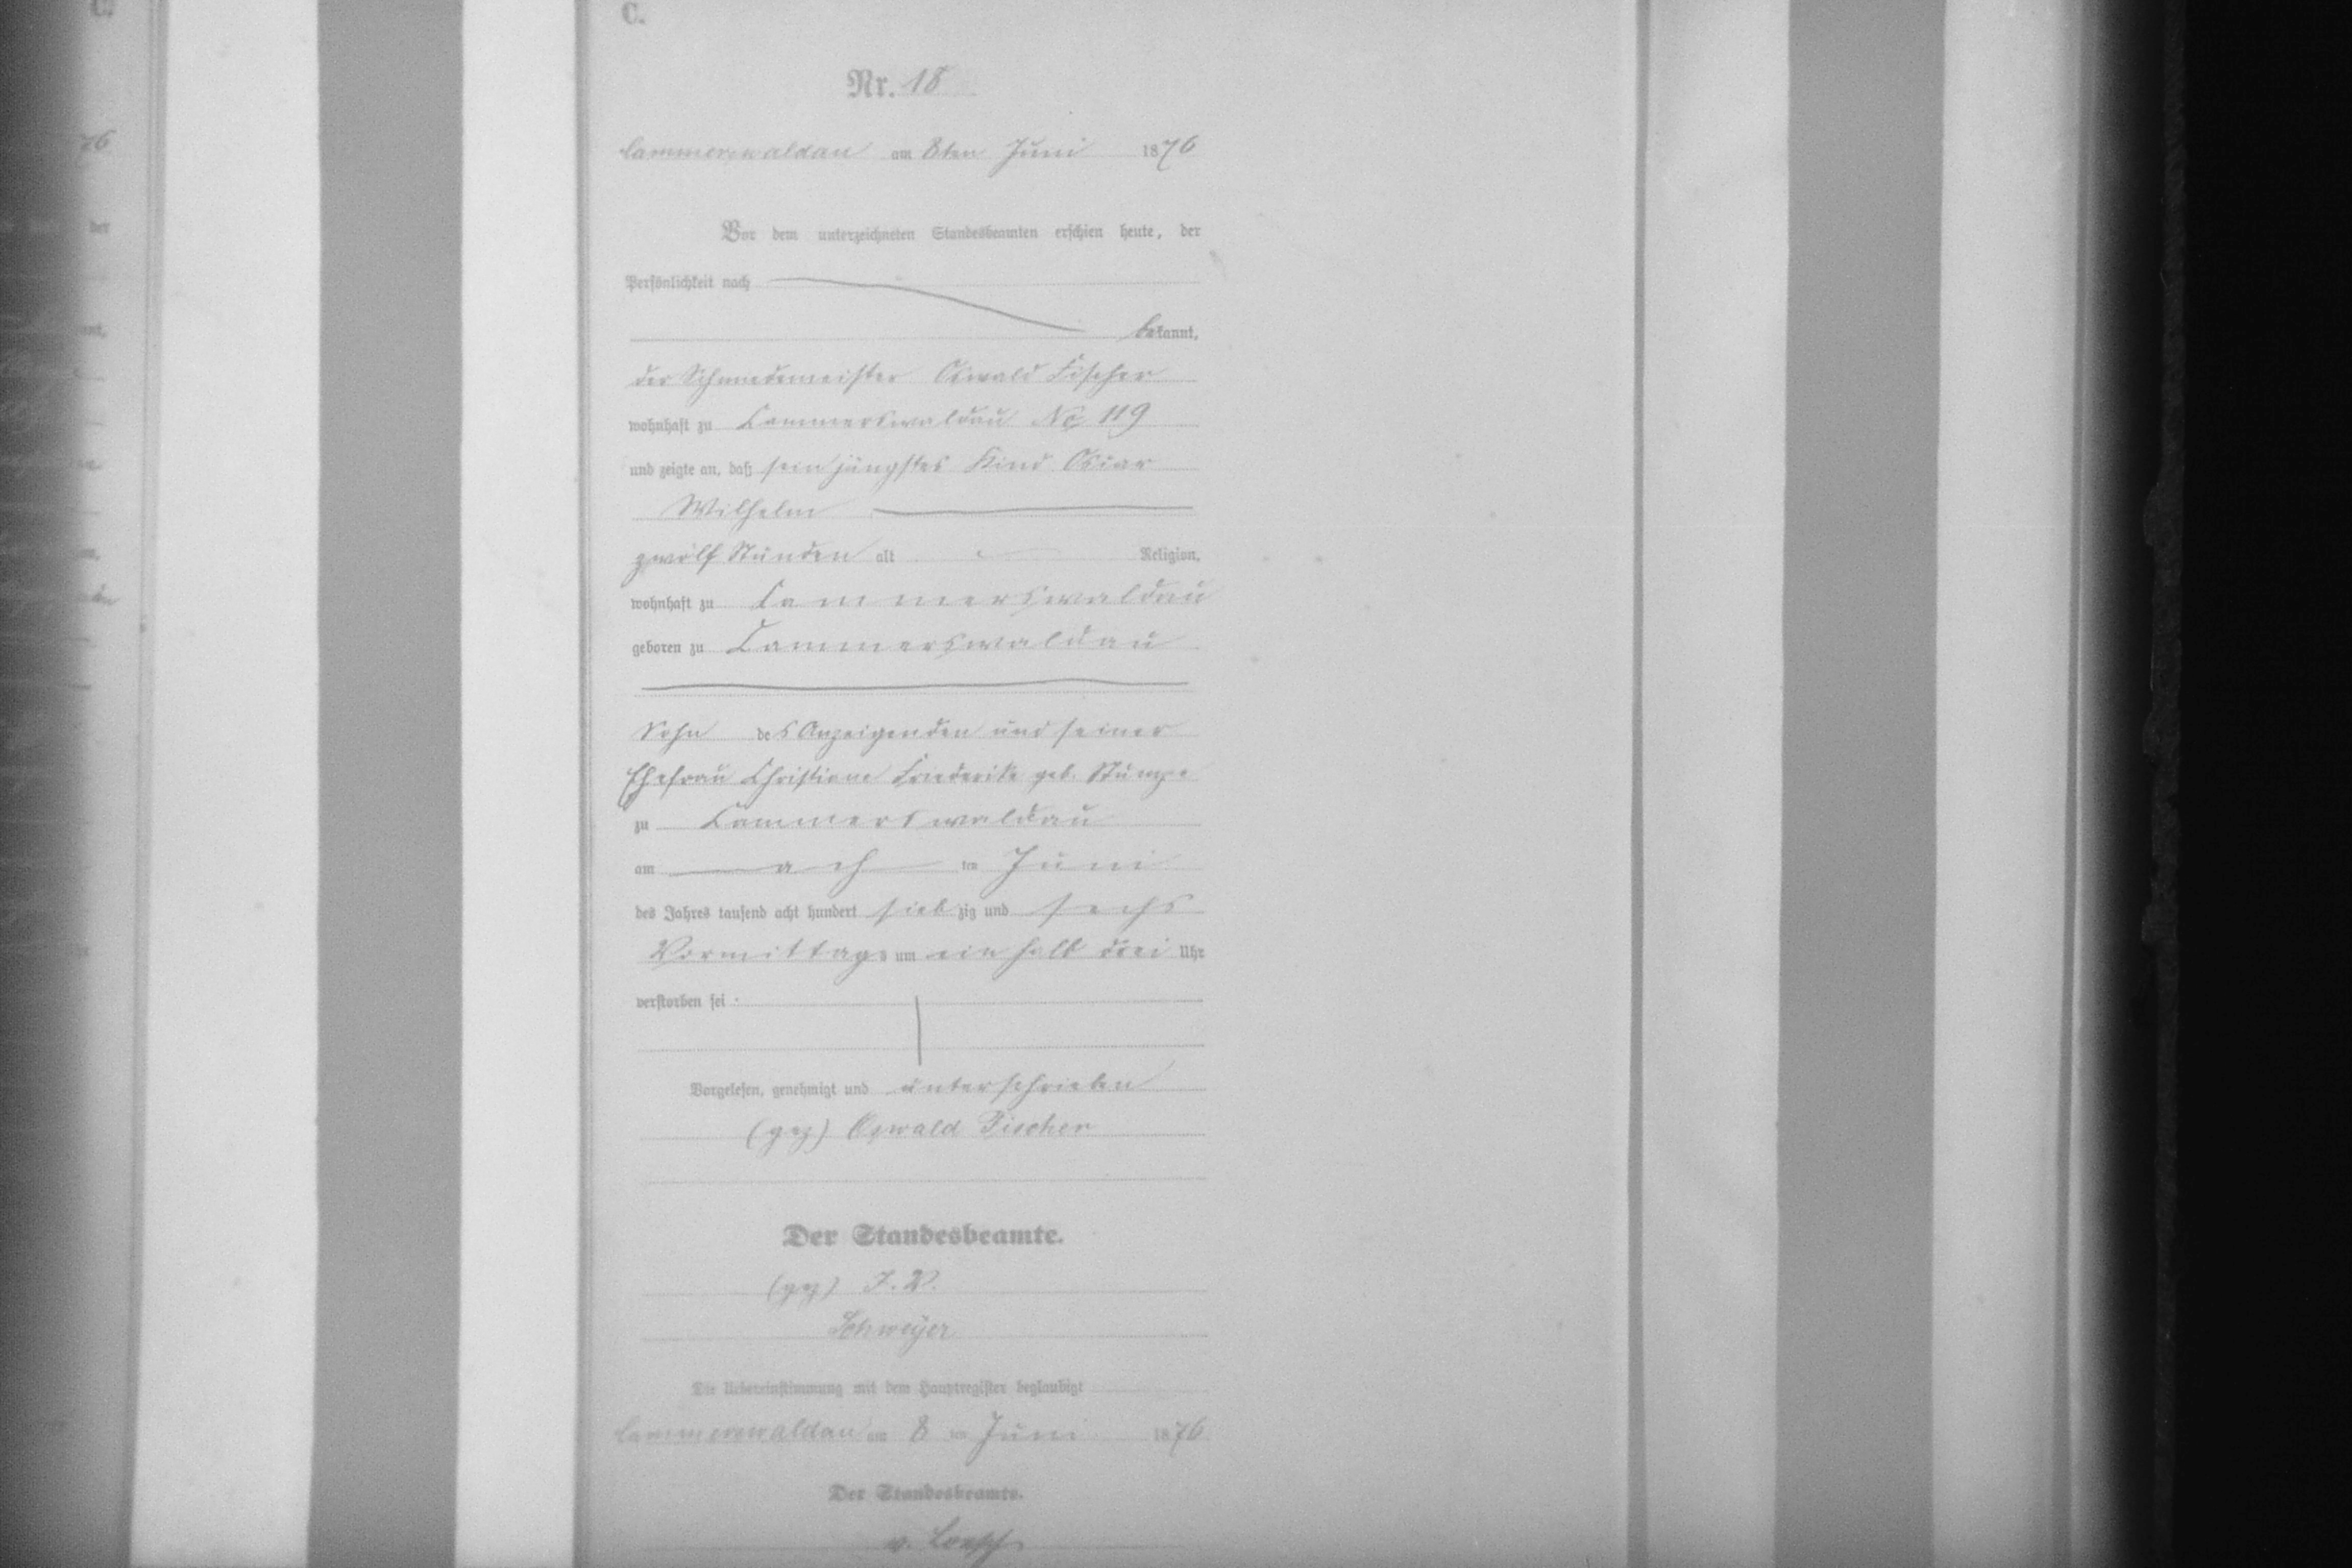 C.
Nr. 18
Cammerswaldau am 8ten Juni 1876
Vor dem unterzeichneten Standesbeamten erschien heute, der
Persönlichkeit nach
bekannt,
der Schmiedemeister Oswald Fischer
wohnhaft zu Cammerswaldau No 119
und zeigte an, daß sein jüngstes Kind Oscar
Wilhelm
zwölf Stunden alt Religion,
wohnhaft zu Cammerswaldau
geboren zu Cammerswaldau
Sohn des Anzeigenden und seiner
Ehefrau Christiane Friederike geb. Stumpe
zu Cammerswaldau
am ach ten Juni
des Jahres tausend acht hundert siebzig und sechs
Vormittags um ein halb drei Uhr
verstorben sei
Vorgelesen, genehmigt und unterschrieben
(gez) Oswald Fischer
Der Standesbeamte.
(gez) I. V.
Schweijer
Die Uebereinstimmung mit dem Hauptregister beglaubigt
Cammerswaldau am 8 ten Juni 1876
Der Standesbeamte.
v.